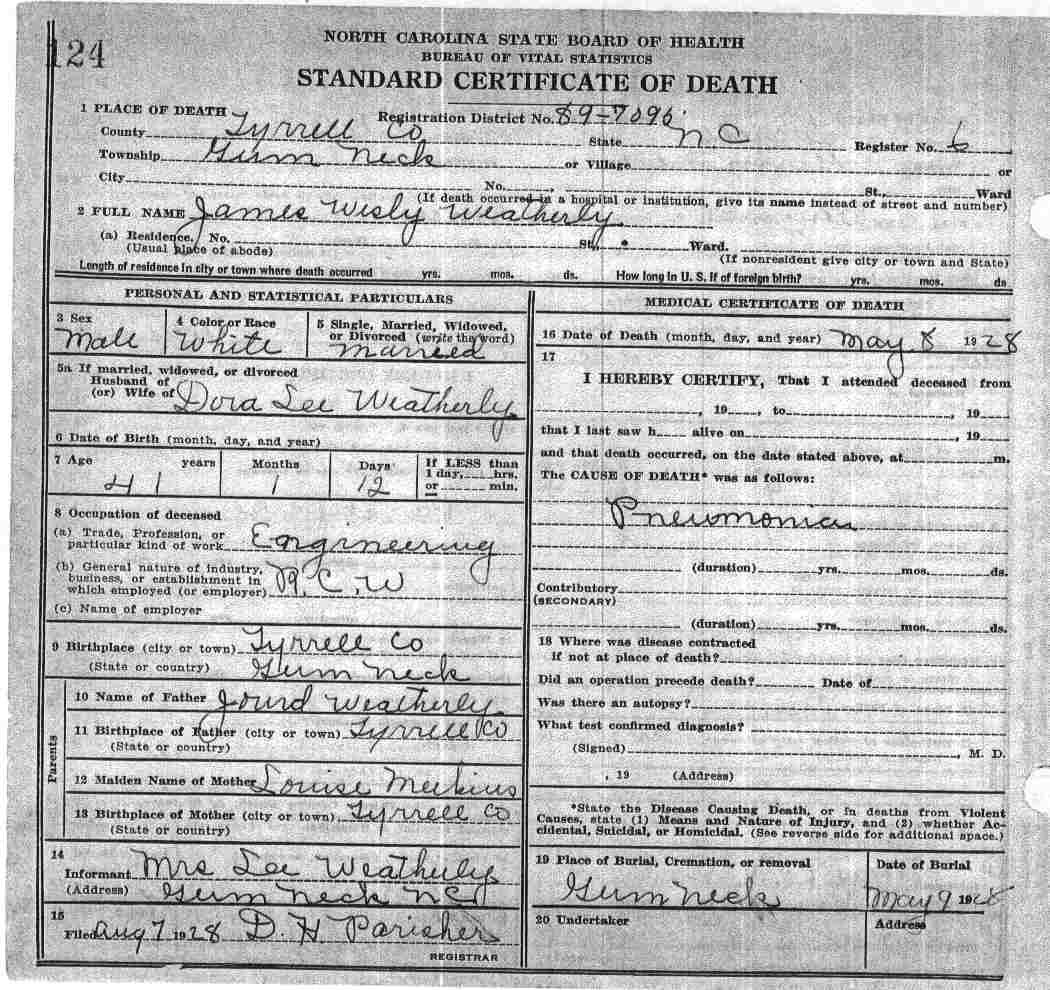 124
NORTH CAROLINA STATE BOARD OF HEALTH
BUREAU OF VITAL STATISTICS
STANDARD CERTIFICATE OF DEATH
1 PLACE OF DEATH
Registration District No. 89-7096
County Tyrrell Co State N C Register No. 6
Township Gum Neck or Village or
City No. , St., Ward
(If death occurred in a hospital or institution, give its name instead of street and number)
2 FULL NAME James Wesly Weatherly
(a) Residence, No. St., Ward.
(Usual place of abode) (If nonresident give city or town and State)
Length of residence in city or town where death occurred yrs. mos. ds. How long in U. S. if of foreign birth? yrs. mos. ds
PERSONAL AND STATISTICAL PARTICULARS
3 Sex 4 Color or Race 5 Single, Married, Widowed,
or Divorced (write the word)
Male White Married
5a If married, widowed, or divorced
Husband of
(or) Wife of Dora Lee Weatherly
6 Date of Birth (month, day, and year)
7 Age years Months Days If LESS than
1 day, hrs.
41 1 12 or min.
8 Occupation of deceased
(a) Trade, Profession, or
particular kind of work Engineering
(b) General nature of industry,
business, or establishment in
which employed (or employer) C. W
(c) Name of employer
9 Birthplace (city or town) Tyrrell Co
(State or country) Gum Neck
Parents
10 Name of Father Weatherly
11 Birthplace of Father (city or town) Tyrrell Co
(State or country)
12 Maiden Name of Mother Louise Meekins
13 Birthplace of Mother (city or town) Tyrrell Co
(State or country)
14
Informant Mrs Lee Weatherly
(Address) Gum Neck NC
15
Filed Aug 7 1928 D. H Parisher
REGISTRAR
MEDICAL CERTIFICATE OF DEATH
16 Date of Death (month, day, and year) May 8 1928
17
I HEREBY CERTIFY, That I attended deceased from
, 19 , to , 19
that I last saw h alive on , 19
and that death occurred, on the date stated above, at m.
The CAUSE OF DEATH* was as follows:
Pneumonia
(duration) yrs. mos. ds.
Contributory
(SECONDARY)
(duration) yrs. mos. ds.
18 Where was disease contracted
if not at place of death?
Did an operation precede death? Date of
Was there an autopsy?
What test confirmed diagnosis?
(Signed) , M. D.
, 19 (Address)
*State the Disease Causing Death, or in deaths from Violent
Causes, state (1) Means and Nature of Injury, and (2) whether Ac-
cidental, Suicidal, or Homicidal. (See reverse side for additional space.)
19 Place of Burial, Cremation, or removal Date of Burial
Gum Neck May 9 1928
20 Undertaker Address